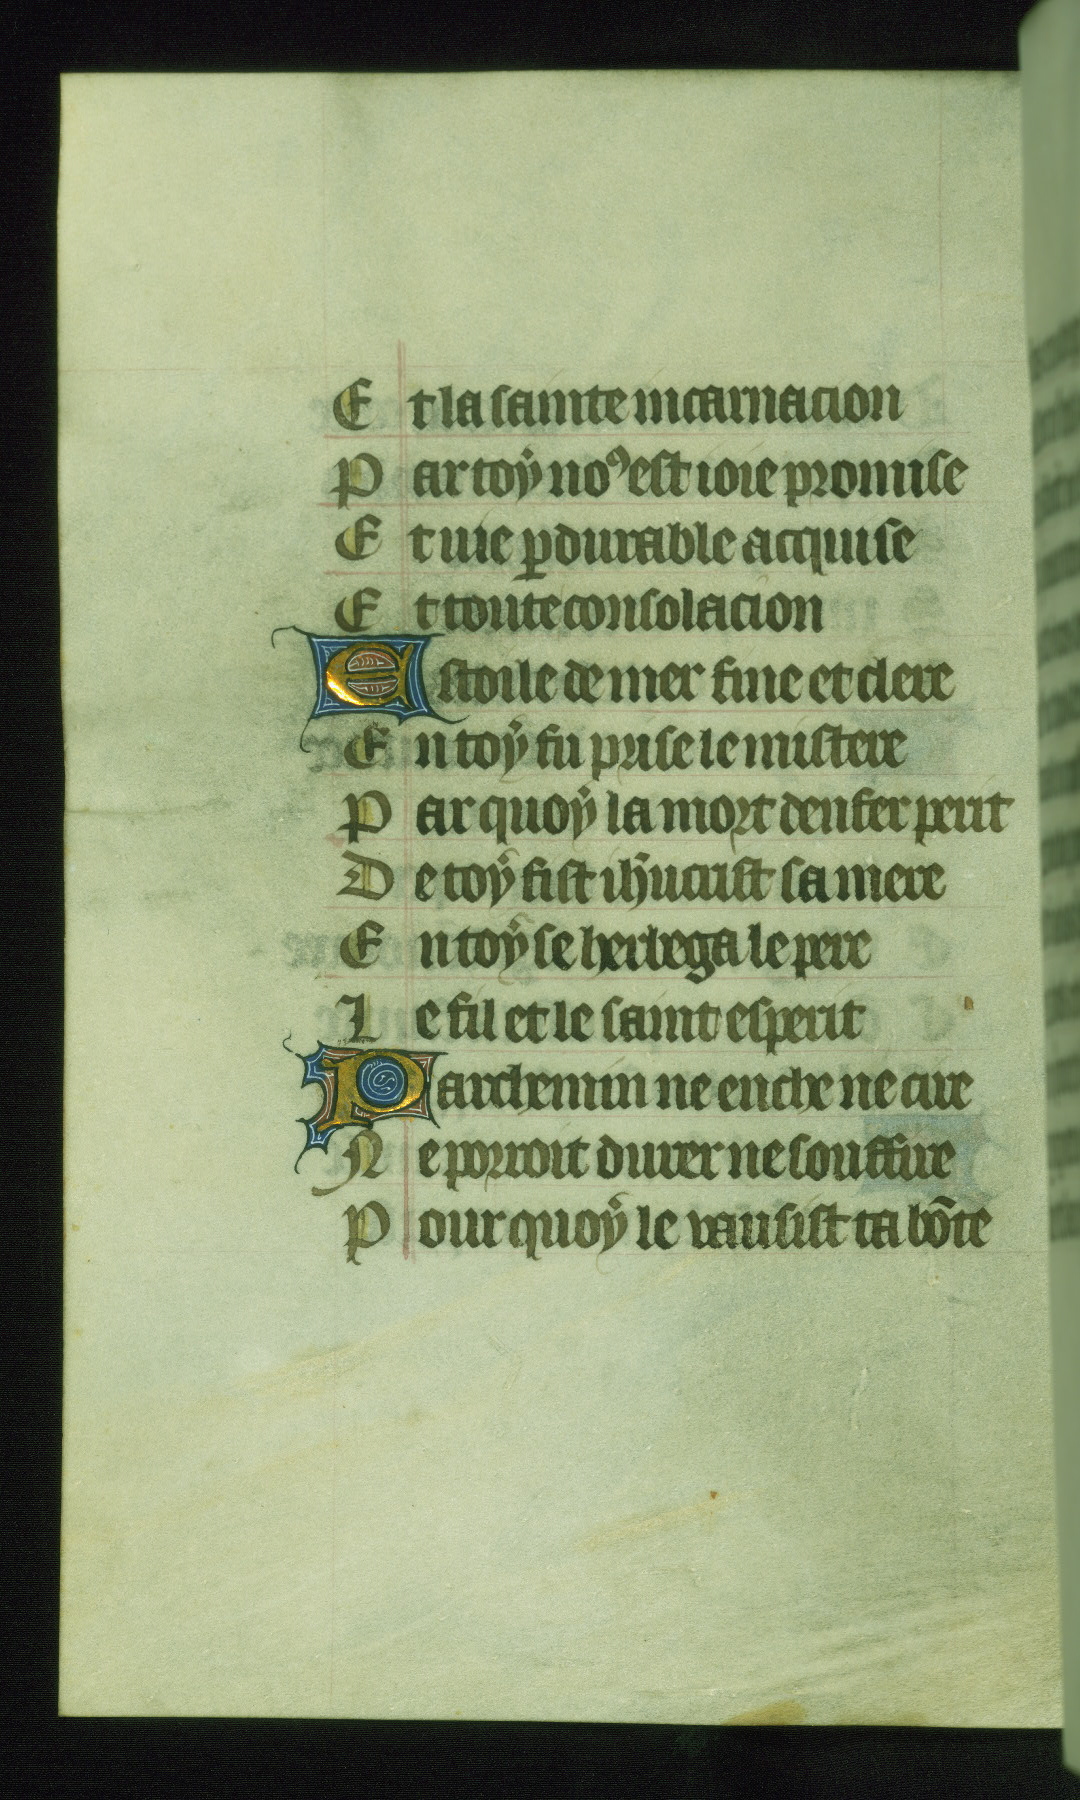 Et la sainte incarnacion
Par toẏ noꝰ est ioie promise
Et uie ꝑdurable acquise
Et toute consolacion
Estoile de mer fine et clere
En toẏ fu prise le mistere
Par quoẏ la mort denfer perit
De toẏ fist ih̄ucrist sa mere
En toẏ se herbega le pere
Le fil et le saint esperit
Parchemin ne enche ne cire
Ne porroit durer ne souffire
Pour quoẏ le vausist ta bōte